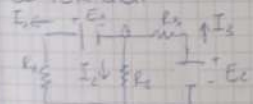 I₁ E₁ R₃ I₃
+
R₁ I₂ R₂ E₂
-